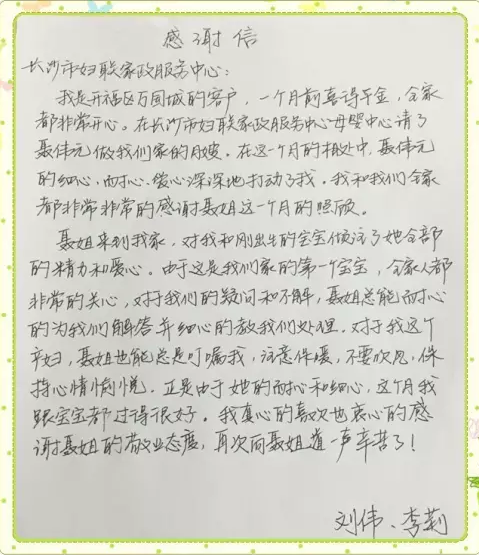 感谢信
长沙市妇联家政服务中心：
我是开福区万国城的客户，一个月前喜得千金，全家
都非常开心。在长沙市妇联家政服务中心母婴中心请了
聂伟元做我们家的月嫂。在这一个月的相处中，聂伟元
的细心，耐心、爱心深深地打动了我。我和我们全家
都非常非常的感谢聂姐这一个月的照顾。
聂姐来到我家，对我和刚出生的宝宝倾注了她全部
的精力和爱心。由于这是我们家的第一个宝宝，全家人都
非常的关心，对于我们的疑问和不解，聂姐总能耐心
的为我们解答并细心的教我们处理。对于我这个
产妇，聂姐也能总是叮嘱我，注意保暖，不要吹风，保
持心情愉悦。正是由于她的耐心和细心，这个月我
跟宝宝都过得很好。我真心的喜欢也衷心的感
谢聂姐的敬业态度，再次向聂姐道一声辛苦了！
刘伟、李莉